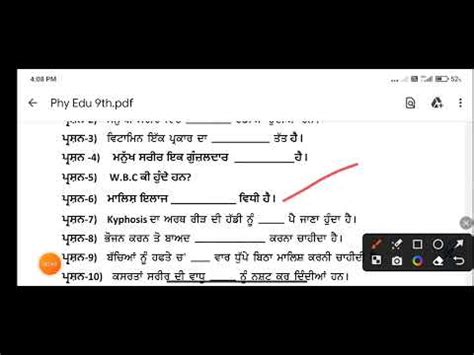 4:08 PM
52%
Phy Edu 9th.pdf
ਪ੍ਰਸ਼ਨ-3) ਵਿਟਾਮਿਨ ਇੱਕ ਪ੍ਰਕਾਰ ਦਾ _________ ਤੱਤ ਹੈ।
ਪ੍ਰਸ਼ਨ -4) ਮਨੁੱਖ ਸਰੀਰ ਇਕ ਗੁੰਜਲਦਾਰ __________ਹੈ।
ਪ੍ਰਸ਼ਨ-5) W.B.C ਕੀ ਹੁੰਦੇ ਹਨ?
ਪ੍ਰਸ਼ਨ-6) ਮਾਲਿਸ਼ ਇਲਾਜ ____________ ਵਿਧੀ ਹੈ।
ਪ੍ਰਸ਼ਨ-7) Kyphosis ਦਾ ਅਰਥ ਰੀੜ ਦੀ ਹੱਡੀ ਨੂੰ _____ ਪੈ ਜਾਣਾ ਹੁੰਦਾ ਹੈ।
ਪ੍ਰਸ਼ਨ-8) ਭੋਜਨ ਕਰਨ ਤੋ ਬਾਅਦ __________ ਕਰਨਾ ਚਾਹੀਦਾ ਹੈ।
ਪ੍ਰਸ਼ਨ-9) ਬੱਚਿਆਂ ਨੂੰ ਹਫਤੇ ਚ' ____ ਵਾਰ ਧੁੱਪੇ ਬਿਠਾ ਮਾਲਿਸ਼ ਕਰਨੀ ਚਾਹੀਦੀ
ਪ੍ਰਸ਼ਨ-10) ਕਸਰਤਾਂ ਸਰੀਰ ਦੀ ਵਾਧੂ _____ ਨੂੰ ਨਸ਼ਟ ਕਰ ਦਿੰਦੀਆਂ ਹਨ।